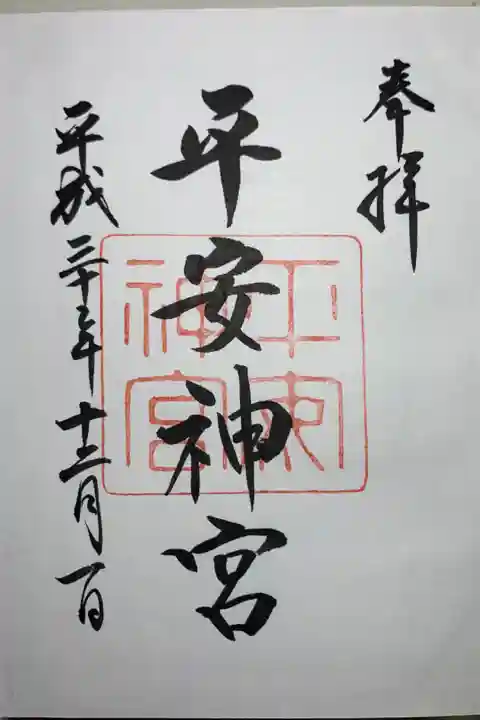 奉拝
平安神宮
平安神宮
平成二十二年十二月一日